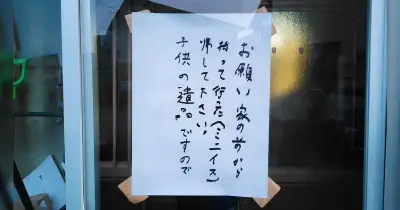 お願い 家の前から
持って行た(ミニイス)
帰して下さい!
子供の遺品ですので